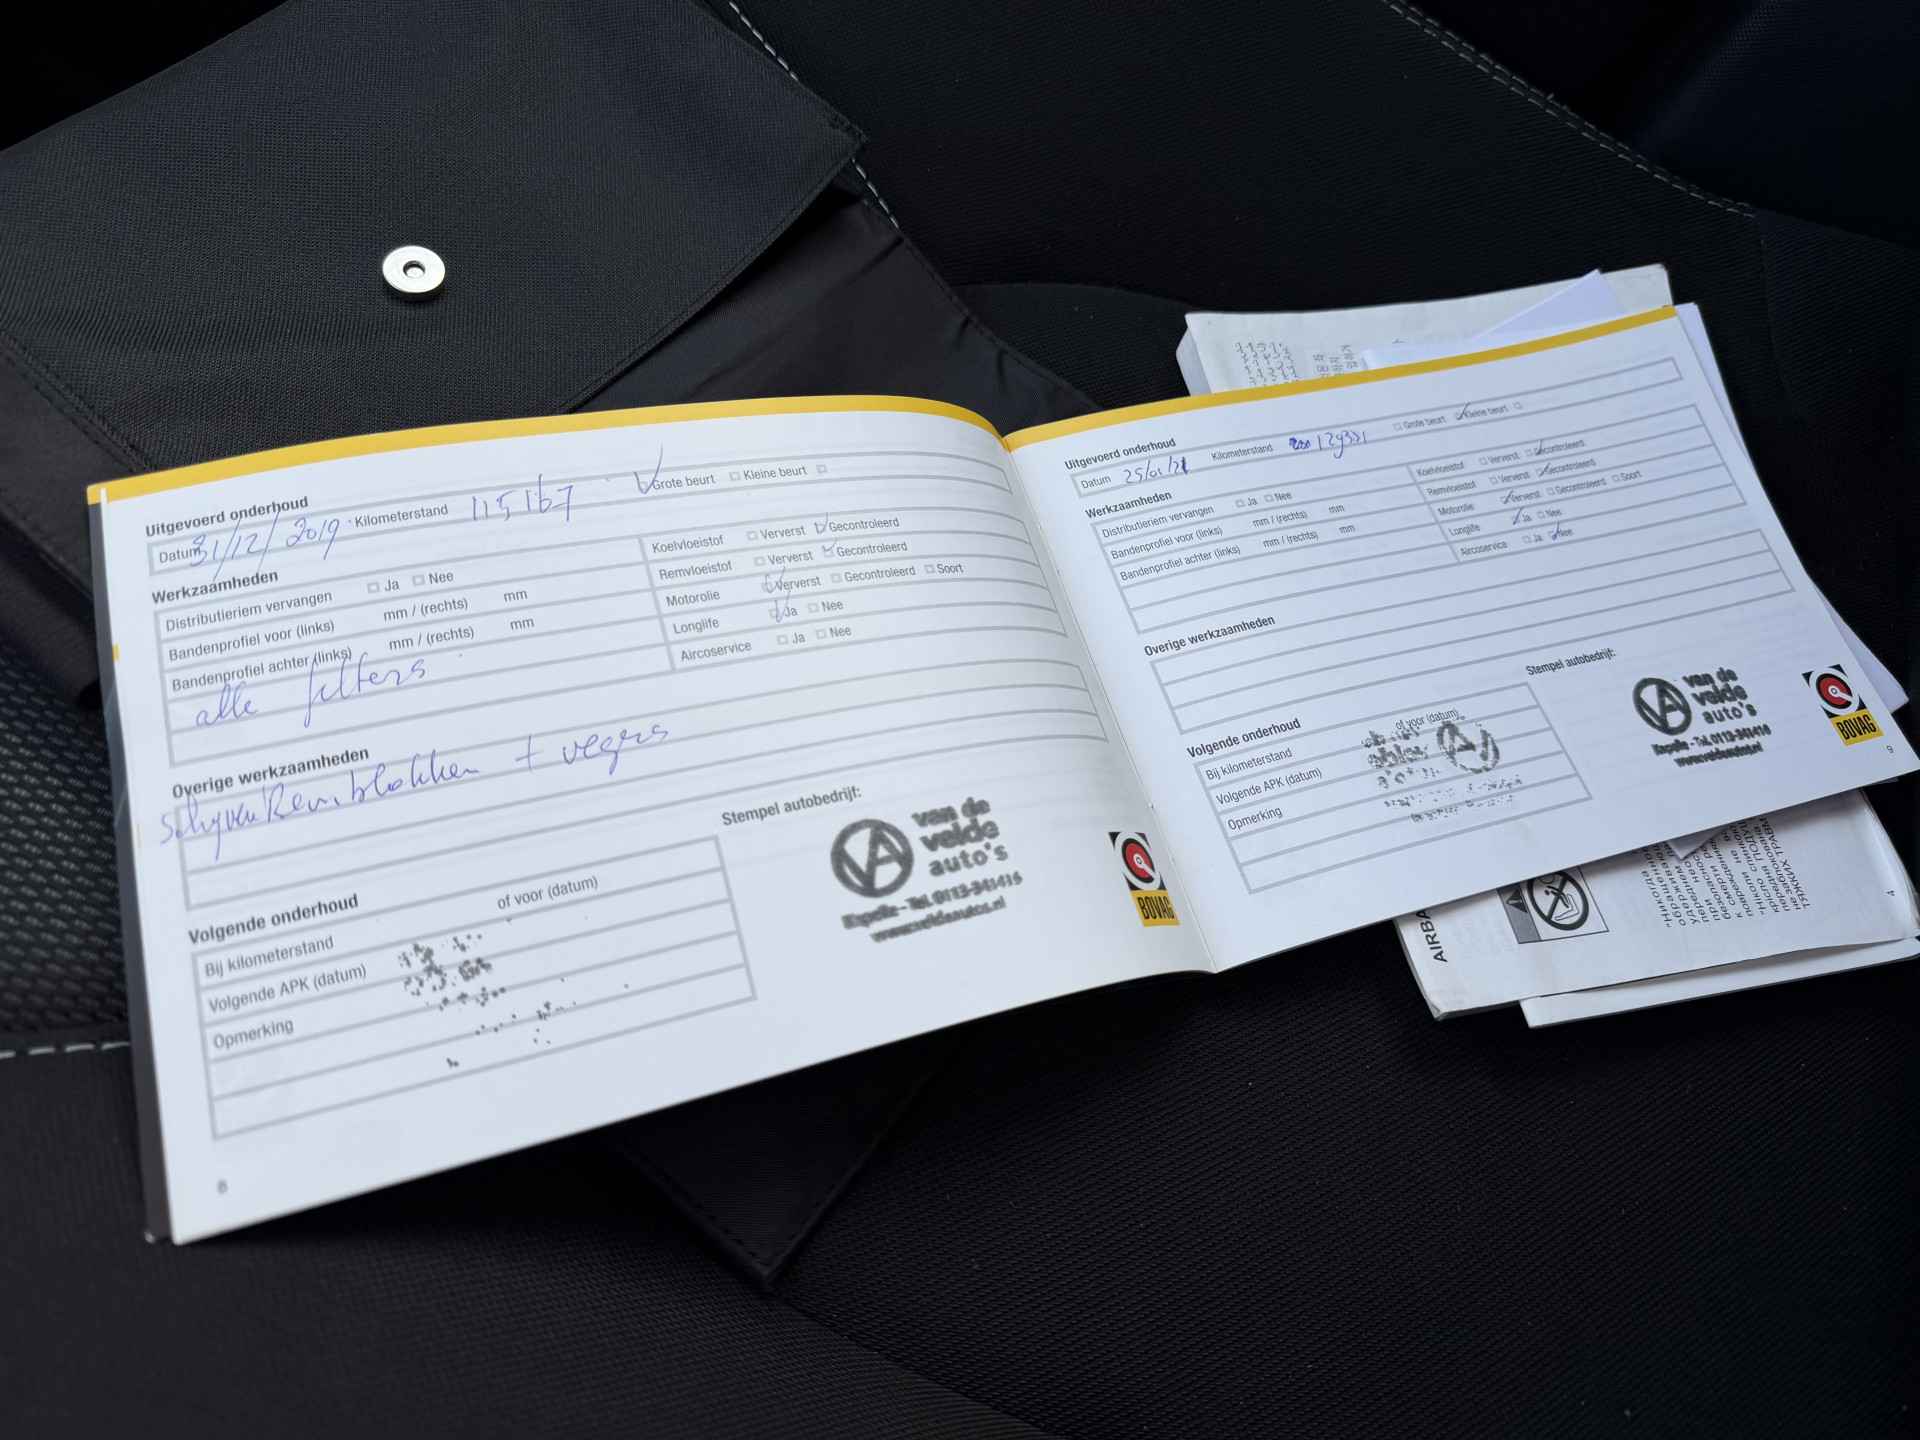 Uitgevoerd onderhoud
Datum 31/12/2019 Kilometerstand 115167 Grote beurt Kleine beurt
Werkzaamheden
Distributieriem vervangen Ja Nee
Bandenprofiel voor (links) mm / (rechts) mm
Bandenprofiel achter (links) mm / (rechts) mm
alle filters
Koelvloeistof Ververst Gecontroleerd
Remvloeistof Ververst Gecontroleerd
Motorolie Ververst Gecontroleerd Soort
Longlife Ja Nee
Aircoservice Ja Nee
Overige werkzaamheden
Schyven Remblokken + vegers
Volgende onderhoud
Bij kilometerstand of voor (datum)
Volgende APK (datum)
Opmerking
Stempel autobedrijf:
VA van de velde auto's
Kapelle - Tel. 0113-341416
www.veldeautos.nl
BOVAG
8
Uitgevoerd onderhoud
Datum 25/01/21 Kilometerstand Grote beurt Kleine beurt
Werkzaamheden
Distributieriem vervangen Ja Nee
Bandenprofiel voor (links) mm / (rechts) mm
Bandenprofiel achter (links) mm / (rechts) mm
Koelvloeistof Ververst Gecontroleerd
Remvloeistof Ververst Gecontroleerd
Motorolie Ververst Gecontroleerd Soort
Longlife Ja Nee
Aircoservice Ja Nee
Overige werkzaamheden
Volgende onderhoud
Bij kilometerstand of voor (datum)
Volgende APK (datum)
Opmerking
Stempel autobedrijf:
VA van de velde auto's
Kapelle - Tel. 0113-341416
www.veldeautos.nl
BOVAG
9
AIRBA
4